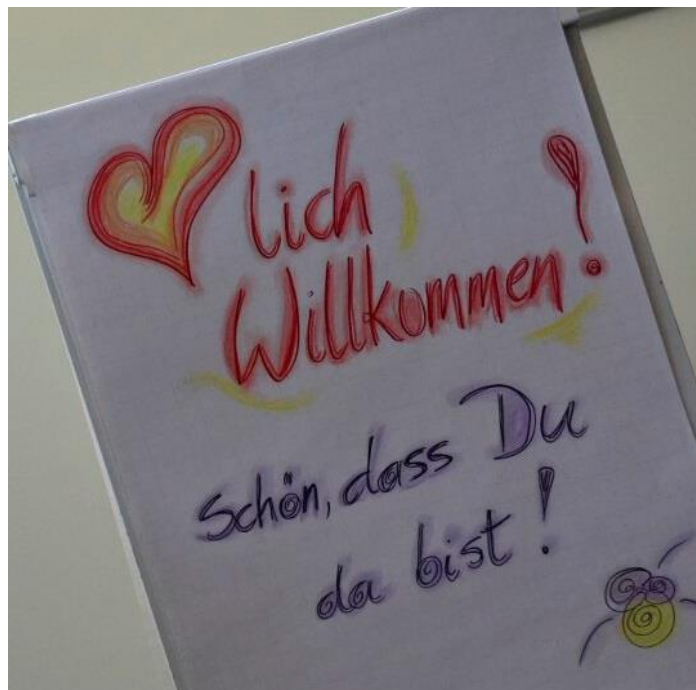 lich
Willkommen!
Schön, dass Du
da bist!